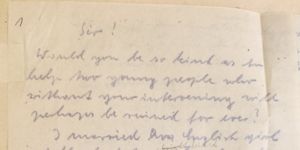 1
Sir!
Would you be so kind as to
help two young people who
without your intervening will
perhaps be ruined for ever?
I married an English girl